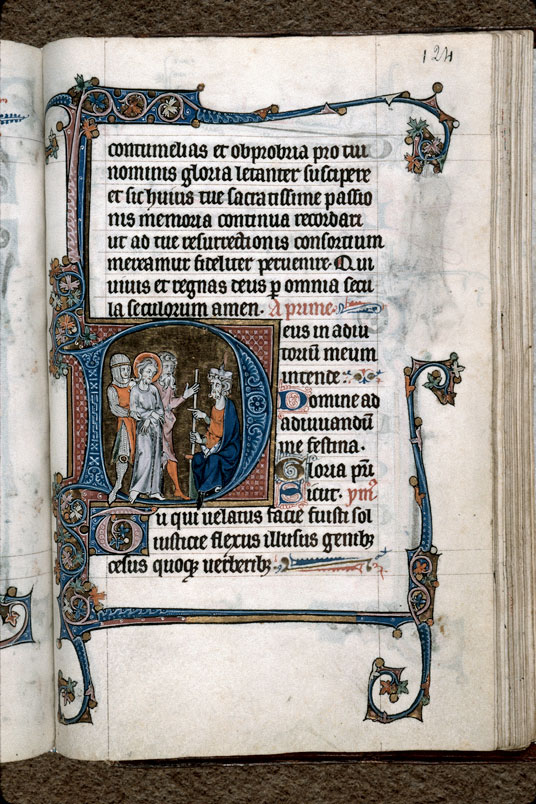 124
contumelias et obprobria pro tui
nominis gloria letanter suscipere
et sic huius tue sacratissime passio
nis memoria continua recordari
ut ad tue resurrectionis consortium
mereamur fideliter peruenire. Qui
uiuis et regnas deus p omnia secu
la seculorum amen. A prime.
Deus in adiu
toriū meum
intende.
Domine ad
adiuuandū
me festina.
Gloria pr̄i
Sicut. ym̄.
Tu qui uelatus facie fuisti sol
iusticie flexus illusus genibꝫ
cesus quoqꝫ uerberibꝫ